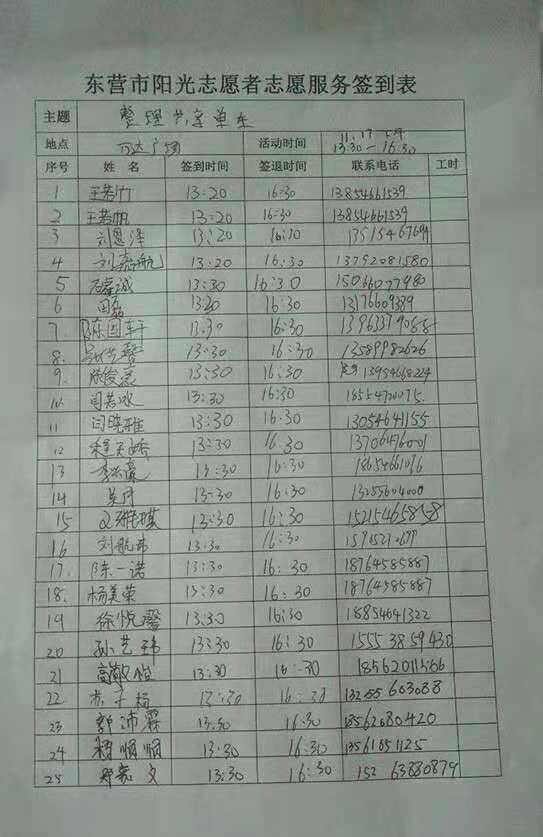 东营市阳光志愿者志愿服务签到表
主题 整理共享单车
地点 万达广场 活动时间 11.17 下午 13:30-16:30
序号 姓 名 签到时间 签退时间 联系电话 工时
1 王若竹 13:20 16:30 13854661539
2 王若帆 13:20 16:30 13854661539
3 刘恩泽 13:20 16:30
4 刘嘉航 13:20 16:30 13792081580
5 13:30 16:30 15066077980
6 13:30 16:30 13176609389
7 陈国轩 13:30 16:30 13963379088
8 13:30 16:30 13589982626
9 13:30 16:30 13954668224
10 闫若冰 13:30 16:30 18554720075
11 闫晓雅 13:30 16:30 13054641155
12 程天娇 13:30 16:30 13706476001
13 13:30 16:30 18654661016
14 吴月 13:30 16:30 13255604000
15 13:30 16:30 15215465858
16 刘航 13:30 16:30
17 陈一诺 13:30 16:30 18764585887
18 杨美荣 13:30 16:30 18764585887
19 徐悦馨 13:30 16:30 18854641322
20 孙艺玮 13:30 16:30 15553859430
21 13:30 16:30 18562011566
22 13:30 16:30 13255603088
23 郭沛霖 13:30 16:30 18562080420
24 顺顺 13:30 16:30 13561851125
25 郑嘉文 13:30 16:30 15263880879